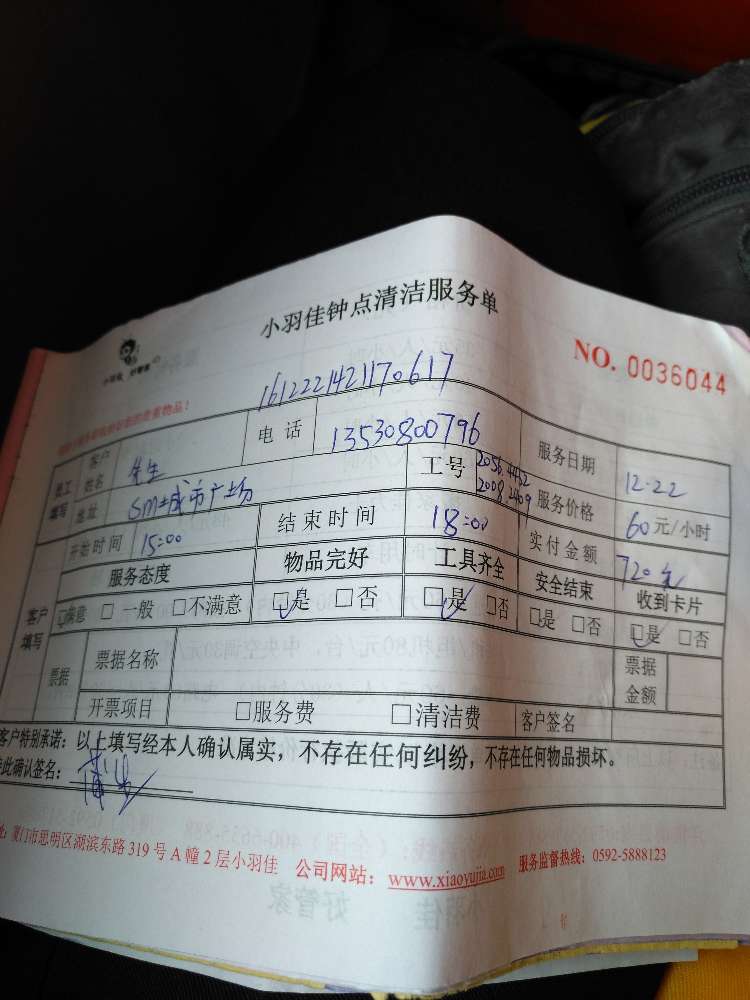 小羽佳钟点清洁服务单
小羽佳 好管家
NO. 0036044
161222142117061​7
员工填写 客户姓名 先生 电话 13530800796 服务日期 12-22
地址 SM城市广场 工号 2056.4452 2008.2409 服务价格 60元/小时
开始时间 15:00 结束时间 18:00 实付金额 720元
客户填写 服务态度 物品完好 工具齐全 安全结束 收到卡片
□满意 □一般 □不满意 □是 □否 □是 □否 □是 □否 □是 □否
票据 票据名称 票据金额
开票项目 □服务费 □清洁费 客户签名
客户特别承诺：以上填写经本人确认属实，不存在任何纠纷，不存在任何物品损坏。
此确认签名：
厦门市思明区湖滨东路319号A幢2层小羽佳 公司网站：www.xiaoyujia.com 服务监督热线：0592-5888123